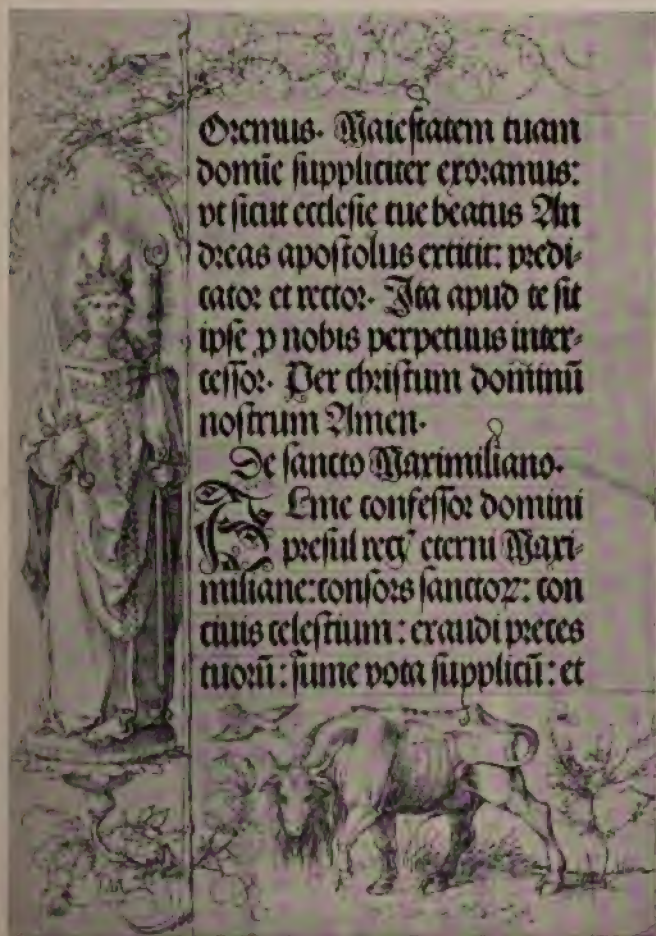 Oremus. Maiestatem tuam
domīe suppliciter exoramus:
vt sicut ecclesie tue beatus An
dreas apostolus extitit: predi-
cator et rector. Ita apud te sit
ipse ꝓ nobis perpetuus inter-
cessor. Per christum dominū
nostrum Amen.
De sancto Maximiliano.
ALme confessor domini
presul regꝭ eterni Maxi-
miliane: consors sanctoꝝ: con
ciuis celestium: exaudi preces
tuorū: sume vota supplicū: et